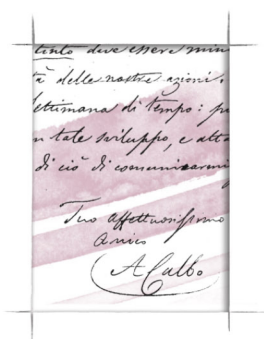 tinto deve essere min
tà delle nostre azioni.
settimana di tempo: p
n tale sviluppo, e alta
di ciò di comunicarmi
Tuo affettuosissimo
amico
A Calbo